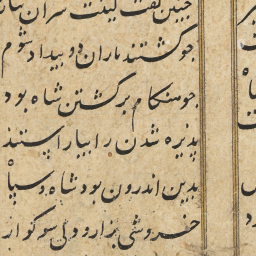 چنین گفت کینت سران سپاه
چو کشتند ماران دو بیداد شوم
چو هنکام برکشتن شاه بود
پذیره شدن را بیاراستند
بدین اندرون بود شاه و سپاه
خروشی بزار و دلی سوکوار